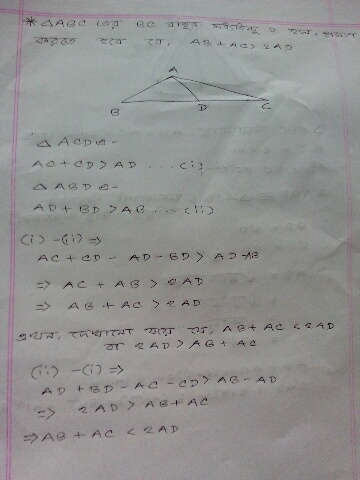 * △ABC এর BC বাহুর মধ্যবিন্দু D হলে, প্রমাণ
করতে হবে যে, AB+AC>2AD
A
B D C
△ ACD এ-
AC+CD>AD ... (i)
△ ABD এ-
AD+BD>AB ... (ii)
(i) -(ii) ⇒
AC+CD- AD-BD> AD-AB
⇒ AC + AB > 2AD
⇒ AB + AC > 2AD
এখন, দেখানো যায় যে, AB+AC < 2AD
বা 2AD > AB + AC
(ii) -(i) ⇒
AD + BD - AC - CD> AB-AD
⇒ 2AD > AB+AC
⇒AB + AC < 2AD